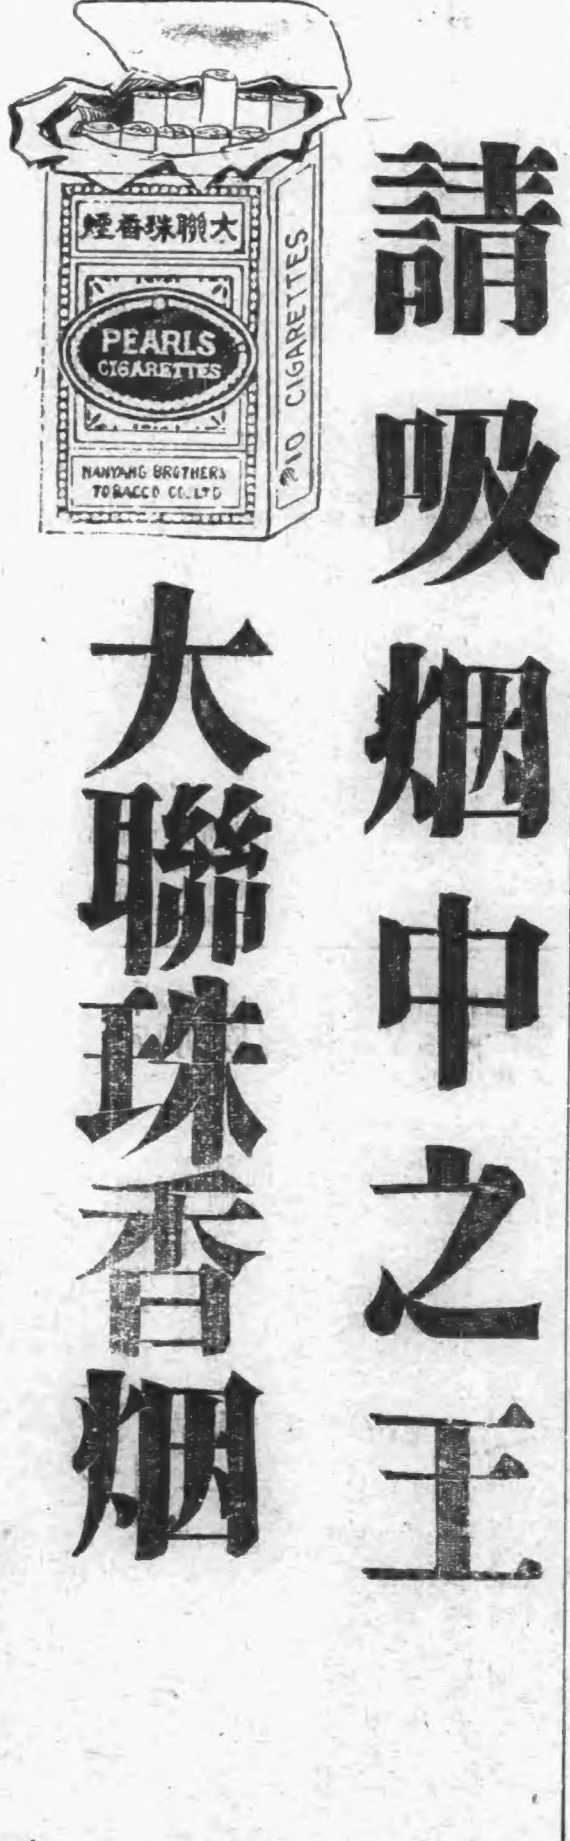 請吸烟中之王
大聯珠香烟
大聯珠香煙
PEARLS
CIGARETTES
NANYANG BROTHERS
TOBACCO CO. LTD
10 CIGARETTES